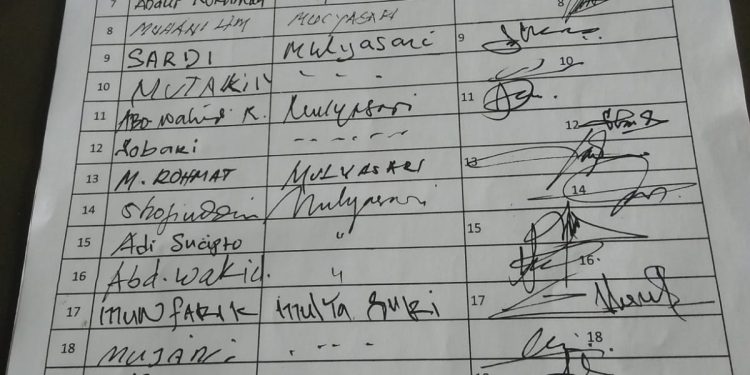 7 Abdur Rohman 8
8 MUHANI LIM MULYASARI
9 SARDI Mulyasari 9
10 MUTAKIN - - - - 10
11 ABD wahid K. Mulyasari 11
12 Sobari - - - - - - 12
13 M. ROHMAT MULYASARI 13
14 Shofiuddin Mulyasari 14
15 Adi Sucipto " 15
16 Abd. wakid. " 16.
17 MUNFARIK MULYA SARI 17
18 MUJARI - - - - 18